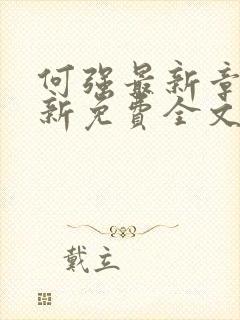 何强最新章
新免費全文
戴立